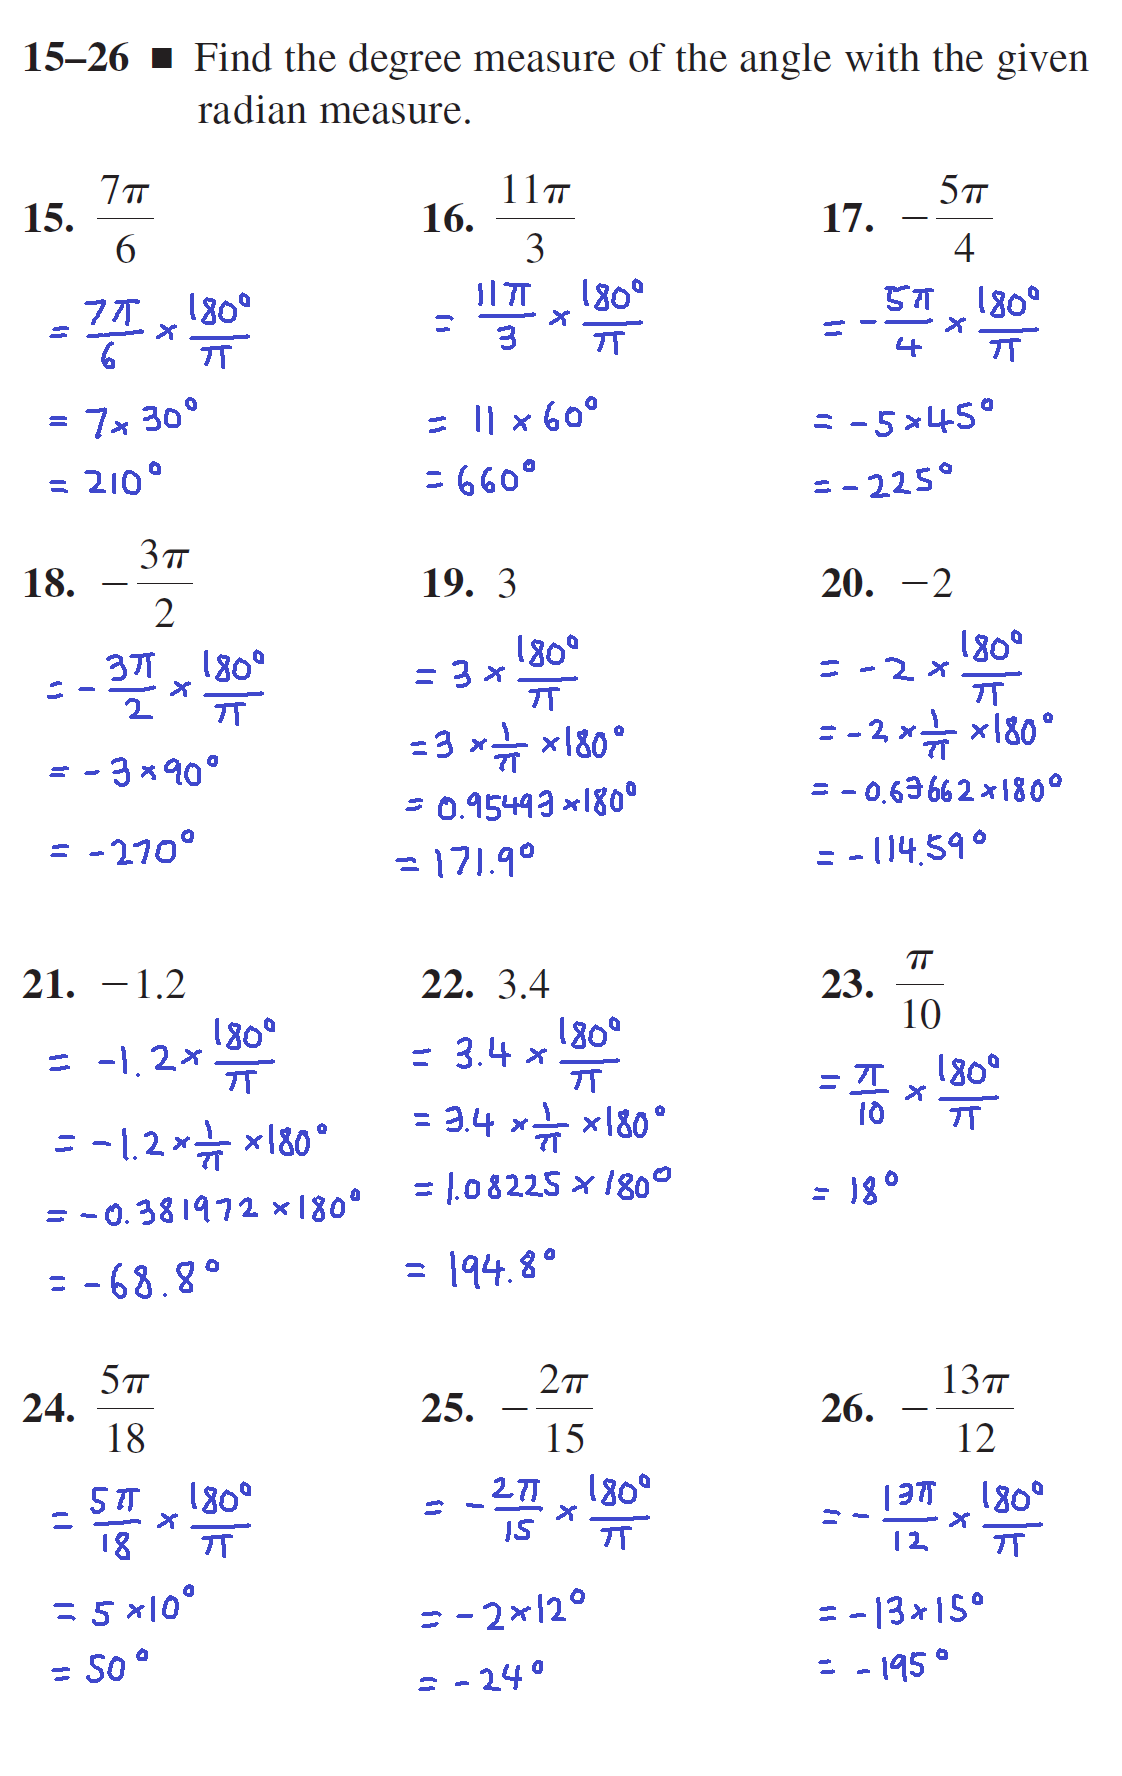 15–26 ■ Find the degree measure of the angle with the given
radian measure.
15. 7π/6
= 7π/6 × 180°/π
= 7 × 30°
= 210°
16. 11π/3
= 11π/3 × 180°/π
= 11 × 60°
= 660°
17. −5π/4
= −5π/4 × 180°/π
= −5 × 45°
= −225°
18. −3π/2
= −3π/2 × 180°/π
= −3 × 90°
= −270°
19. 3
= 3 × 180°/π
= 3 × 1/π × 180°
= 0.95493 × 180°
= 171.9°
20. −2
= −2 × 180°/π
= −2 × 1/π × 180°
= −0.63662 × 180°
= −114.59°
21. −1.2
= −1.2 × 180°/π
= −1.2 × 1/π × 180°
= −0.381972 × 180°
= −68.8°
22. 3.4
= 3.4 × 180°/π
= 3.4 × 1/π × 180°
= 1.08225 × 180°
= 194.8°
23. π/10
= π/10 × 180°/π
= 18°
24. 5π/18
= 5π/18 × 180°/π
= 5 × 10°
= 50°
25. −2π/15
= −2π/15 × 180°/π
= −2 × 12°
= −24°
26. −13π/12
= −13π/12 × 180°/π
= −13 × 15°
= −195°